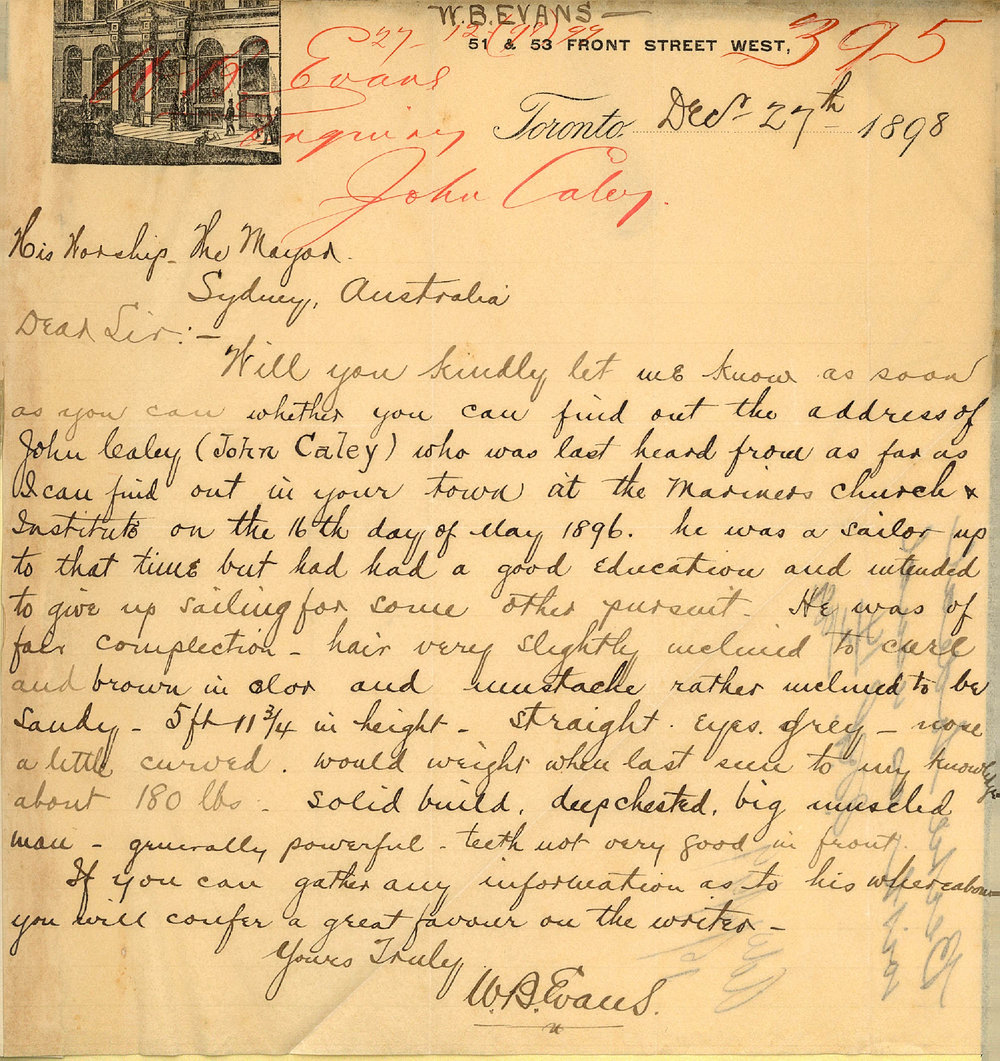 W.B. EVANS —
51 & 53 FRONT STREET WEST,
395
27-12-(98) 99
W B Evans
Enquiry
John Caley.
Toronto Decr 27th 1898
His Worship - The Mayor.
Sydney, Australia
Dear Sir:-
Will you kindly let me know as soon
as you can whether you can find out the address of
John Caley (John Caley) who was last heard from as far as
I can find out in your town at the Mariners church &
Institute on the 16th day of May 1896. he was a sailor up
to that time but had had a good education and intended
to give up sailing for some other pursuit. He was of
fair complection - hair very slightly inclined to curl
and brown in clor and mustache rather inclined to be
sandy - 5ft 11 3/4 in height - straight. eyes grey - nose
a little curved. would weight when last seen to my knowledge
about 180 lbs - solid build, deepchested, big muscled
man - generally powerful - teeth not very good in front.
If you can gather any information as to his whereabou-
you will confer a great favour on the writer -
Yours Truly
W.B. Evans.